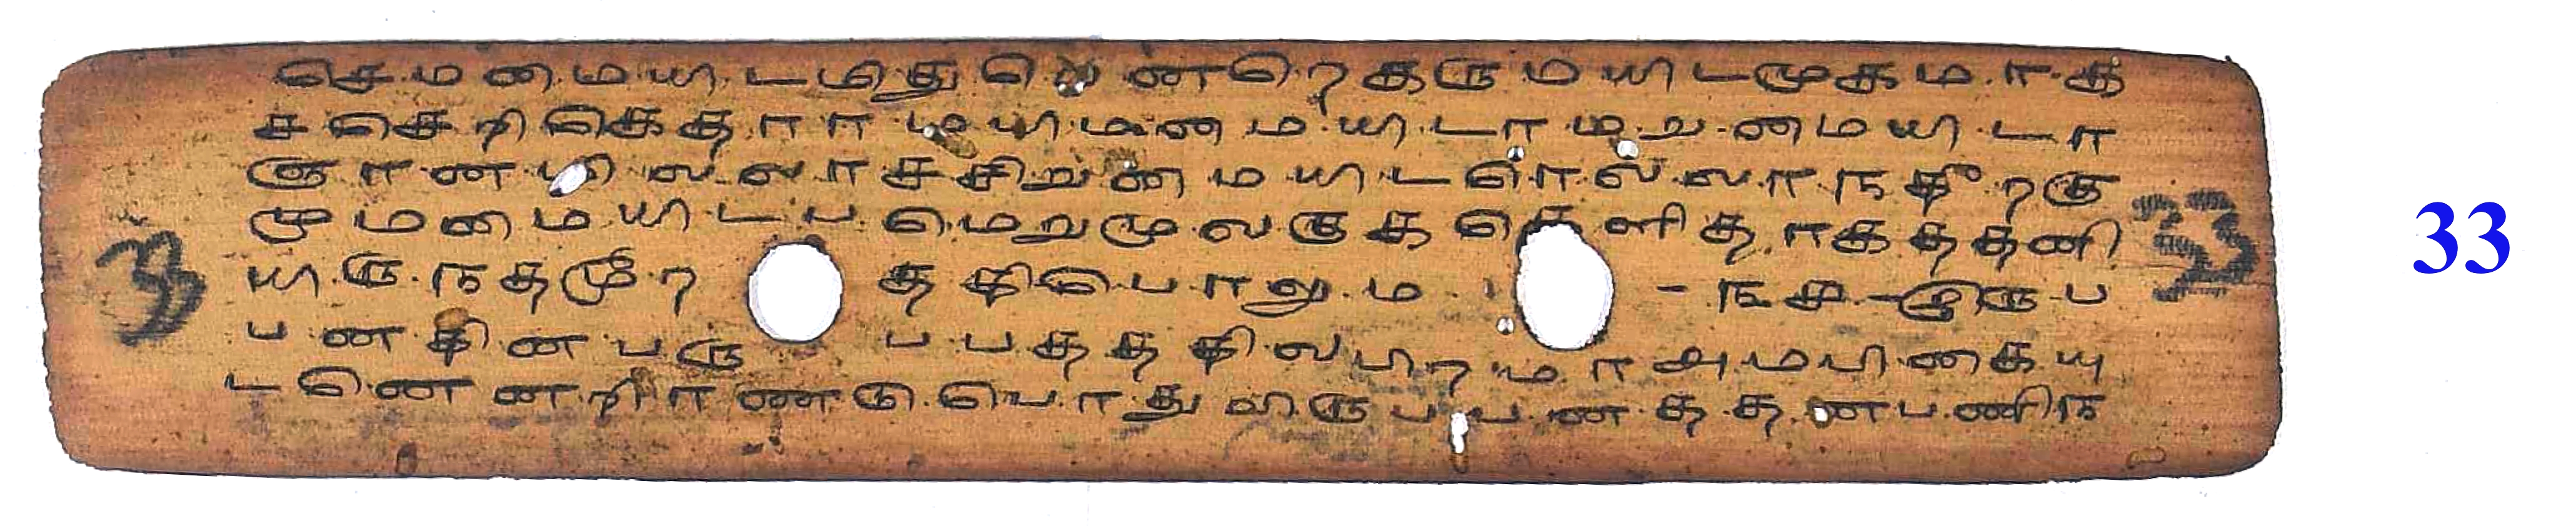 செமனமயிடமிது வென்றெகருமயிடமுகமாக
சசெறிகெகதாரா மயிமனமயிடாமறனமயிடா
ஞானமிலலாச்சிறனமயிடளொல்லாநதீரகு
முமனமயிடபமெறமுலகுககெளிதாகததனி
யிருநதமூர ததிபொலும - நச-இருப
பனதினபரு பபததிலபிரமாஅமபிகையு
டனெனறிாணடுபொதுவிருபபனததனபணிந
33
33